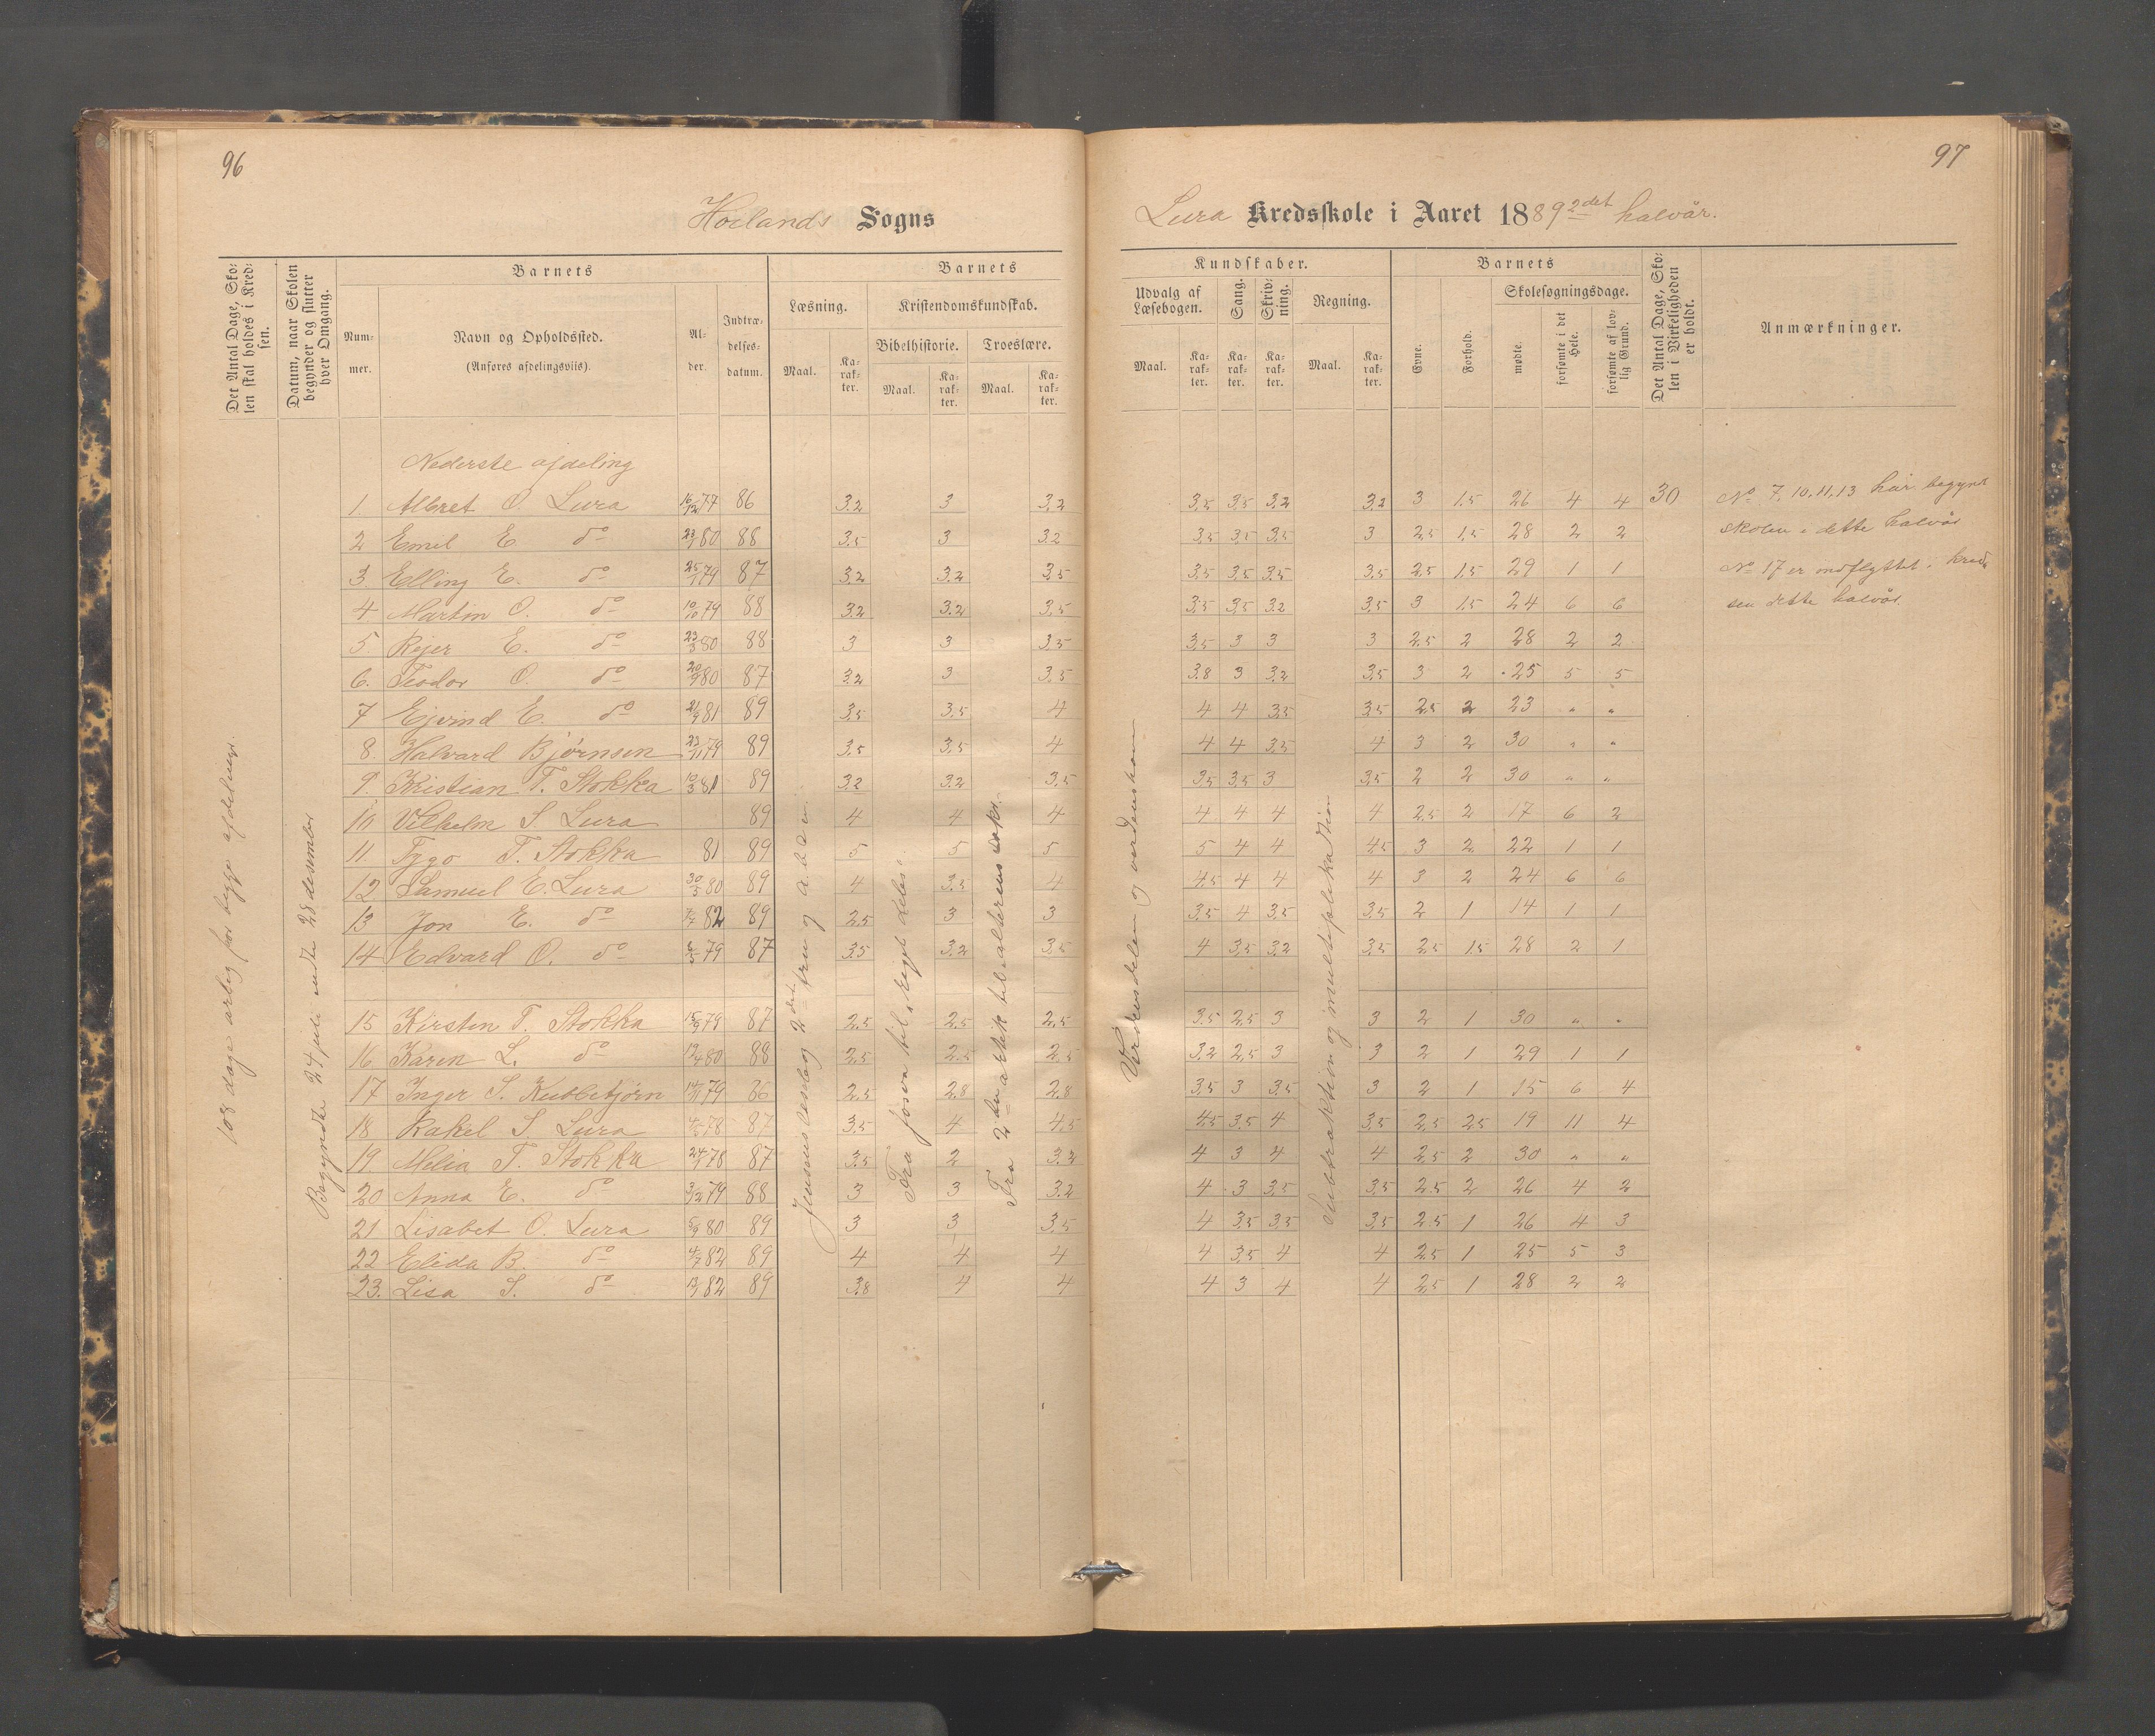 96
Hoilands Sogns
Det Antal Dage, Sko-
len skal holdes i Kred-
sen.
Datum, naar Skolen
begynder og slutter
hver Omgang.
Barnets
Num-
mer.
Navn og Opholdssted.
(Anføres afdelingsviis).
Al-
der.
Indtræ-
delses-
datum.
Barnets
Læsning.
Maal.
Ka-
rak-
ter.
Kristendomskundskab.
Bibelhistorie.
Maal.
Ka-
rak-
ter.
Troeslære.
Maal.
Ka-
rak-
ter.
108 dage arlig for begge afdelinger.
Begyndte 24 juli endte 28 desember
Jensens læsebog 2det trin og
Fra Josva til rigets deles
Fra 2den artik til alterens sakr.
Nederste afdeling
1 Albret O. Lura 16/12 77 86 3.2 3 3,2
2 Emil E. do 23/1 80 88 3.5 3 3.2
3 Elling E. do 25/1 79 87 3.2 3.2 3,5
4 Martin O. do 10/10 79 88 3.2 3.2 3,5
5. Rejer E. do 23/3 80 88 3 3 3,5
6. Teodor O. do 20/9 80 87 3.2 3 3,5
7 Ejvind E. do 21/9 81 89 3,5 3,5 4
8. Halvard Bjørnsen 23/11 79 89 3,5 3,5 4
9. Kristian T. Stokka 10/3 81 89 3.2 3.2 3,5
10 Vilhelm S. Lura 89 4 4 4
11. Tygo T. Stokka 81 89 5 5 5
12 Samuel E. Lura 30/5 80 89 4 3.5 4
13 Jon E. do 7/7 82 89 2.5 3 3
14 Edvard O. do 6/5 79 87 3.5 3.2 3,5
15 Kirsten T. Stokka 15/9 79 87 2.5 2,5 2,5
16 Karen L. do 19/4 80 88 2.5 2.5 2,5
17 Inger S. Kubbetjørn 14/11 79 86 2.5 2.8 2.8
18 Rakel S. Lura 78 87 3,5 4 4,5
19. Melia T. Stokka 24/1 78 87 3.5 2 3.2
20 Anna E. do 3/12 79 88 3 3 3.2
21 Lisabet O. Lura 5/9 80 89 3 3 3,5
22 Elida B. do 4/7 82 89 4 4 4
23. Lisa S. do 82 89 3.8 4 4
97
Lura Kredsskole i Aaret 1889 2det halvår.
Kundskaber.
Udvalg af
Læsebogen.
Maal.
Ka-
rak-
ter.
Sang.
Ka-
rak-
ter.
Skriv-
ning.
Ka-
rak-
ter.
Regning.
Maal.
Ka-
rak-
ter.
Barnets
Evne.
Forhold.
Skolesøgningsdage.
mødte.
forsømte i det
Hele.
forsømte af lov-
lig Grund.
Det Antal Dage, Sko-
len i Virkeligheden
er holdt.
Anmærkninger.
Verdensdelen og verdenshavn
Subtraktion og multiplikation
3,5 3,5 3.2 3.2 3 1.5 26 4 4 30
3,5 3,5 3,5 3 2,5 1,5 28 2 2
3,5 3,5 3,5 3,5 2,5 1.5 29 1 1
3,5 3,5 3.2 3,5 3 1.5 24 6 6
3,5 3 3 3 2.5 2 28 2 2
3.8 3 3.2 3,5 3 2 25 5 5
4 4 3,5 3,5 2.5 2 23 " "
4 4 3,5 4 3 2 30 " "
3,5 3,5 3 3,5 2 2 30 " "
4 4 4 4 2,5 2 17 6 2
5 4 4 4,5 3 2 22 1 1
4,5 4 4 4 3 2 24 6 6
3,5 4 3,5 3,5 2 1 14 1 1
4 3,5 3,2 3,5 2,5 1.5 28 2 1
3.5 2,5 3 3 2 1 30 " "
3,2 2,5 3 3 2 1 29 1 1
3,5 3 3,5 3 2 1 15 6 4
4,5 3,5 4 3,5 2,5 2,5 19 11 4
4 3 4 4 2,5 2 30 " "
4 3 3,5 3,5 2.5 2 26 4 2
4 3,5 3,5 3,5 2,5 1 26 4 3
4 3,5 4 4 2.5 1 25 5 3
4 3 4 4 2,5 1 28 2 2
No 7, 10, 11, 13 har begynt
skolen i dette halvår
No 17 er indflyttet i kred-
sen dette halvår.